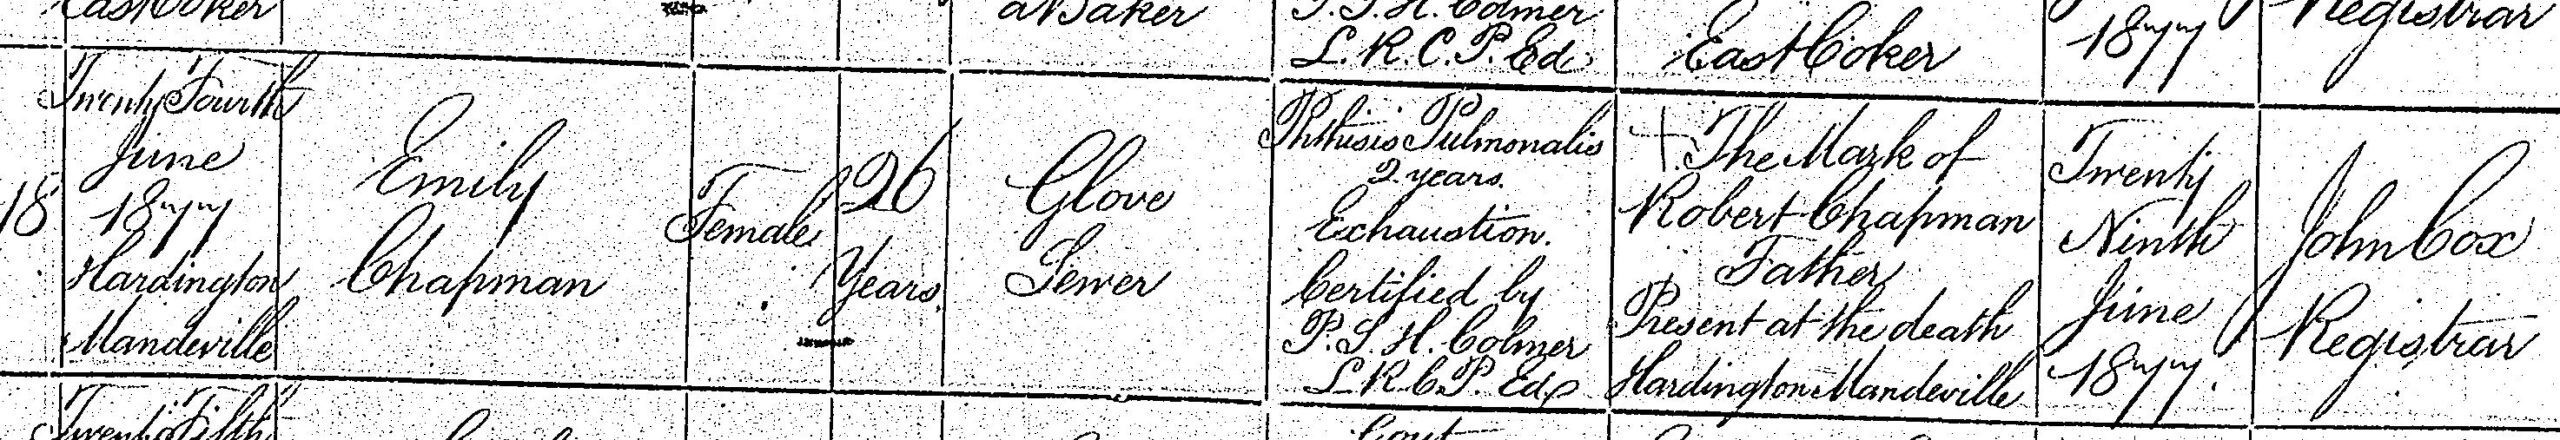 East Coker
a Baker
P.S.H. Colmer
L.R.C.P. Ed.
East Coker
1877
Registrar
18
Twenty Fourth
June
1877
Hardington
Mandeville
Emily
Chapman
Female
26
Years
Glove
Sewer
Phthisis Pulmonalis
2 years.
Exhaustion.
Certified by
P.S.H. Colmer
L.R.C.P. Ed.
+ The Mark of
Robert Chapman
Father
Present at the death
Hardington Mandeville
Twenty
Ninth
June
1877.
John Cox
Registrar
Twenty Fifth
Gout